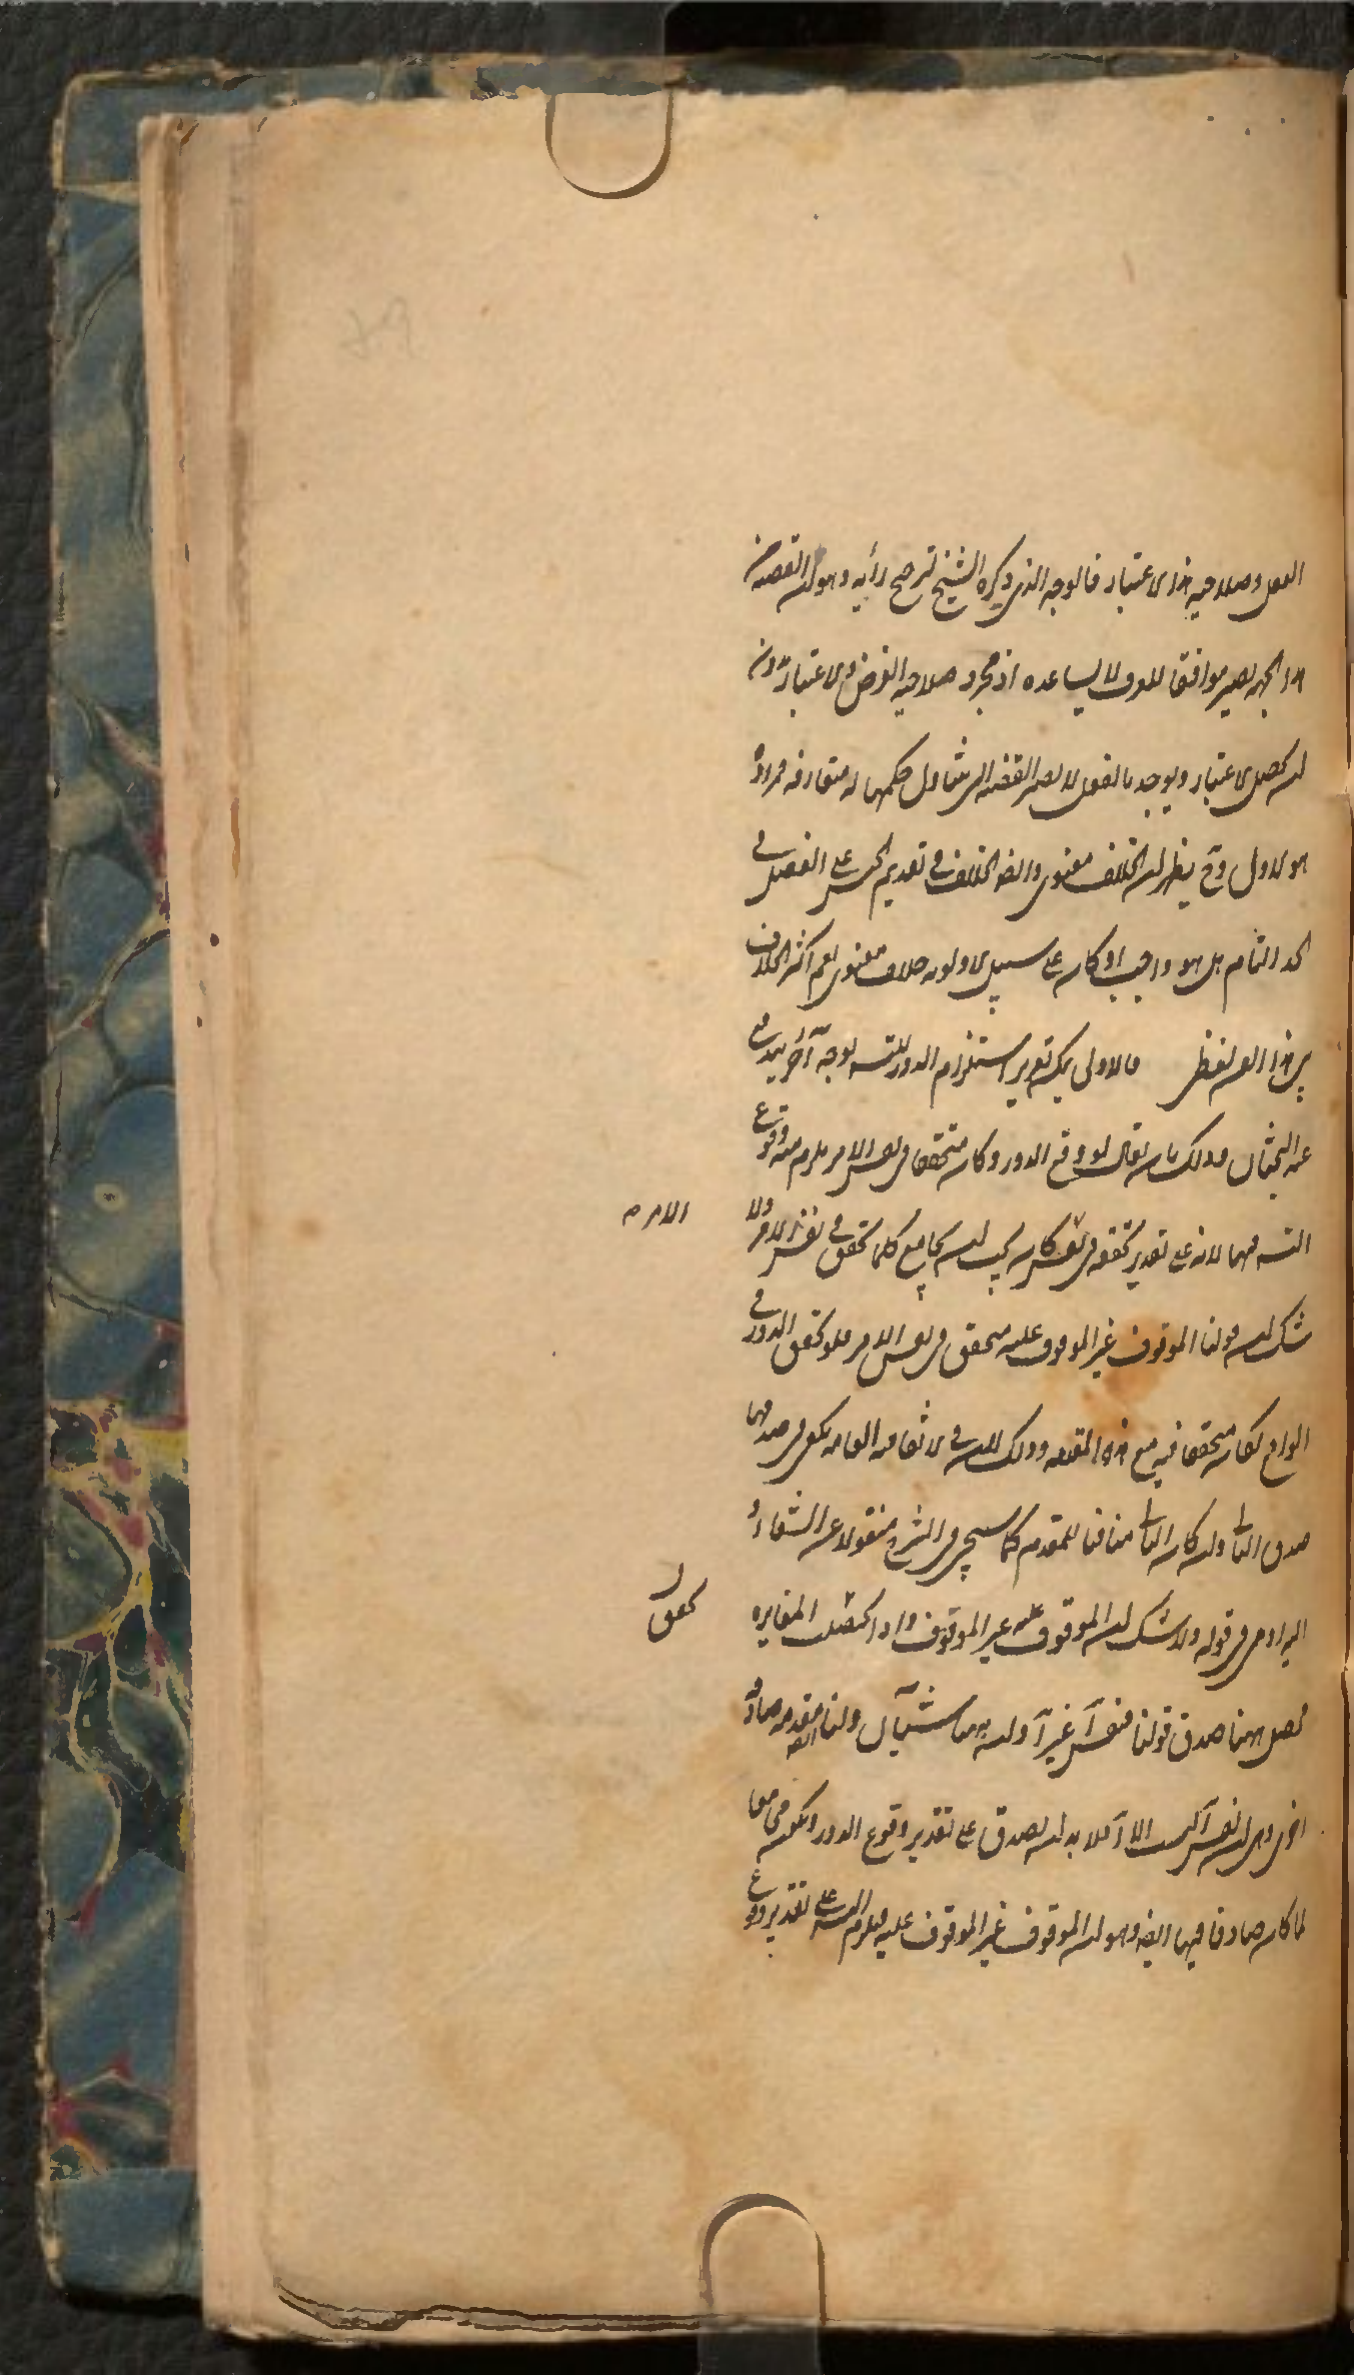 الفعل وصلاحيه هذا الاعتبار فالوجه الذى ذكره الشيخ ترجح رأيه وهو ان القضيه
هذا الجهه يصير موافقا للعرف لا يساعده اذ مجرد صلاحيه الفرض والاعتبار بدون
ان يحصل الاعتبار ويوجد بالفعل لا يصير القضيه التى حكمها متعارفه فمراده
هو الاول وح يظهر ان الخلاف معنوى وايضا الخلاف فى تقديم الجنس على الفصل فى
الحد التام هل هو واجب او كان على سبيل الاولويه خلاف معنوى نعم اكثر الخلاف
فى هذا الفن لفظى فالاولى يمكن تقرير استلزام الدور للتسه بوجه آخر يندفع
عنه البحثان وذلك بان يقال لو وقع الدور وكان متحققا فى نفس الامر يلزم منه وقوع
التسه فيها لانه على تقدير تحققه فى نفس كان يجب ان يجامع كلما تحقق فى نفس الامر ولا
الامر
شك ان قولنا الموقوف غير الموقوف عليه متحقق فى نفس الامر فلو تحقق الدور فى
الواقع لكان متحققا فيه مع هذه المقدمه وذلك لان الاتفاقيه العامه يكفى فى صدقها
صدق التالى وان كان التالى منافيا للمقدم كما سيجئ فى الشرح منقولا عن الشفاء
اليه اومى فى قوله ولا شك ان الموقوف عليه غير الموقوف واذا تحققت المغايره
تحقق
فصل ههنا صدق قولنا فنفس آ غير آ وان بهما شيئآن ولنا مقدمه صادقه
اخرى وهى ان نفس آ ليست الا آ فلا بد ان يصدق على تقدير وقوع الدور ويكون معا
لما كان صادقا فيها ايضا وهو ان الموقوف غير الموقوف عليه فيلزم التسه على تقدير وقوع